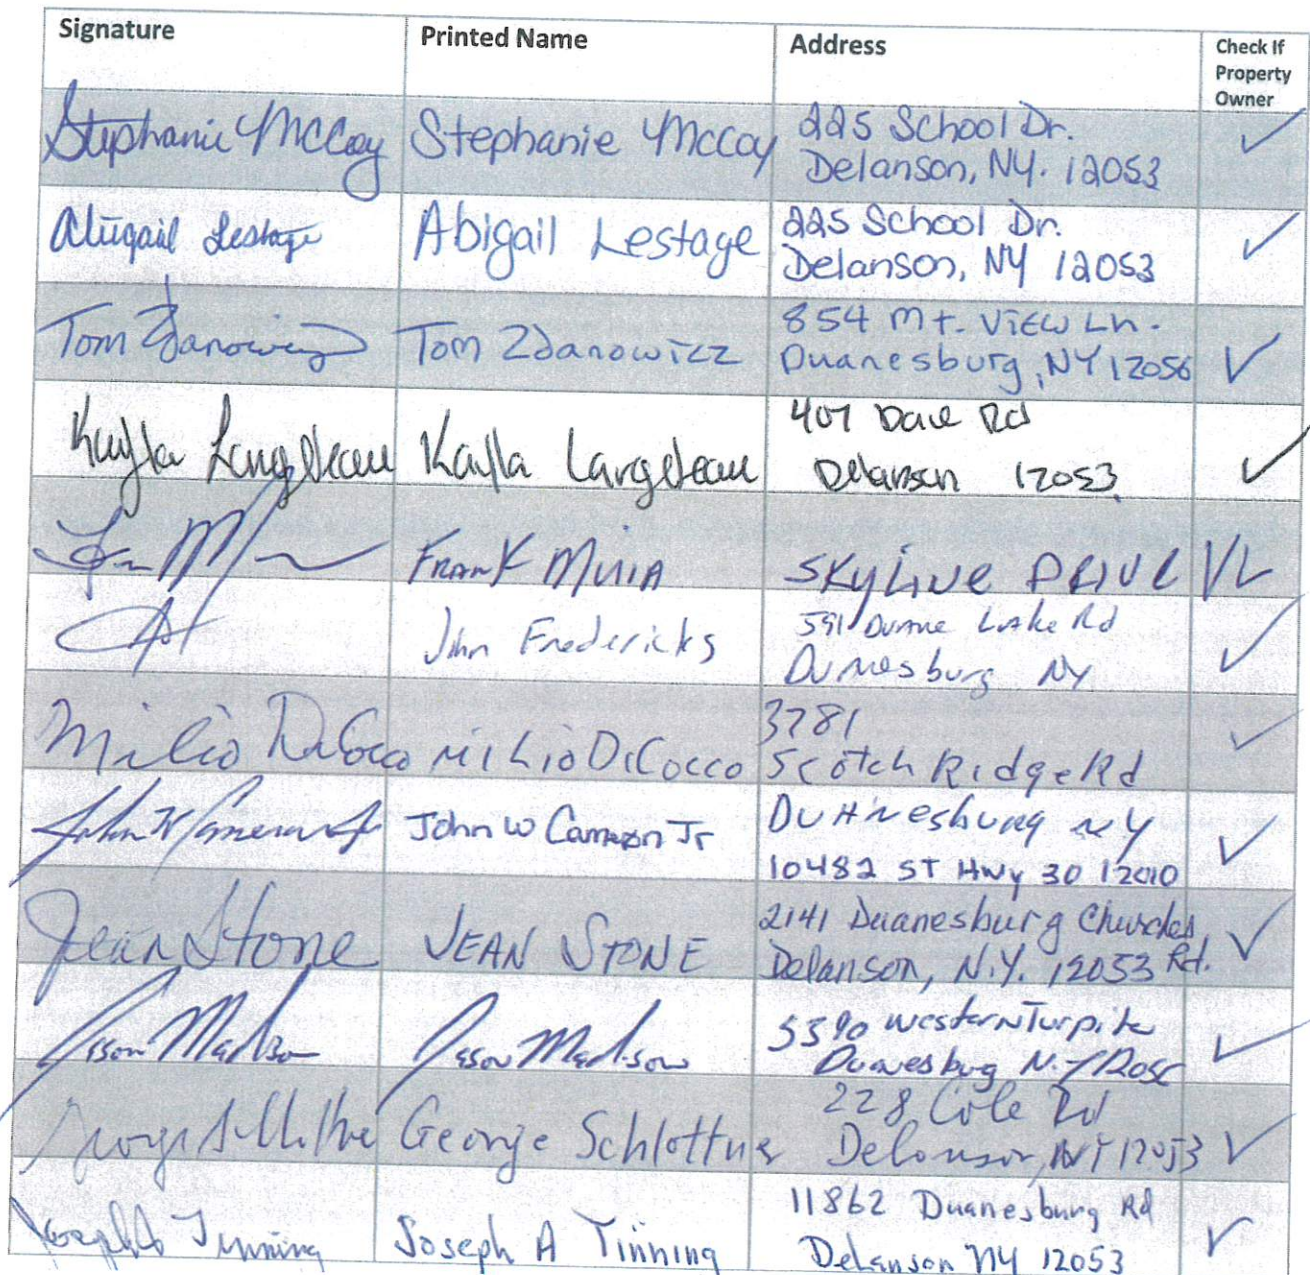 Signature Printed Name Address Check If
Property
Owner
Stephanie McCoy Stephanie McCoy 225 School Dr.
Delanson, NY. 12053
Abigail Lestage Abigail Lestage 225 School Dr.
Delanson, NY 12053
Tom Zdanowicz Tom Zdanowicz 854 Mt. View Ln.
Duanesburg, NY 12056
Kayla Langdeau Kayla Langdeau 407 Dare Rd
Delanson 12053
Frank Muia Skyline Drive
John Fredericks 591 Duane Lake Rd
Duanesburg NY
Milio DiCocco Milio DiCocco 3781
Scotch Ridge Rd
John W Cameron Jr John W Cameron Jr Duanesburg NY
10482 ST Hwy 30 12010
Jean Stone JEAN STONE 2141 Duanesburg Churches
Delanson, N.Y. 12053 Rd.
Jason Madison Jason Madison Western Turpike
Duanesburg N.Y
George Schlottner 228 Cole Rd
Delanson, NY 12053
Joseph A Tinning Joseph A Tinning 11862 Duanesburg Rd
Delanson NY 12053